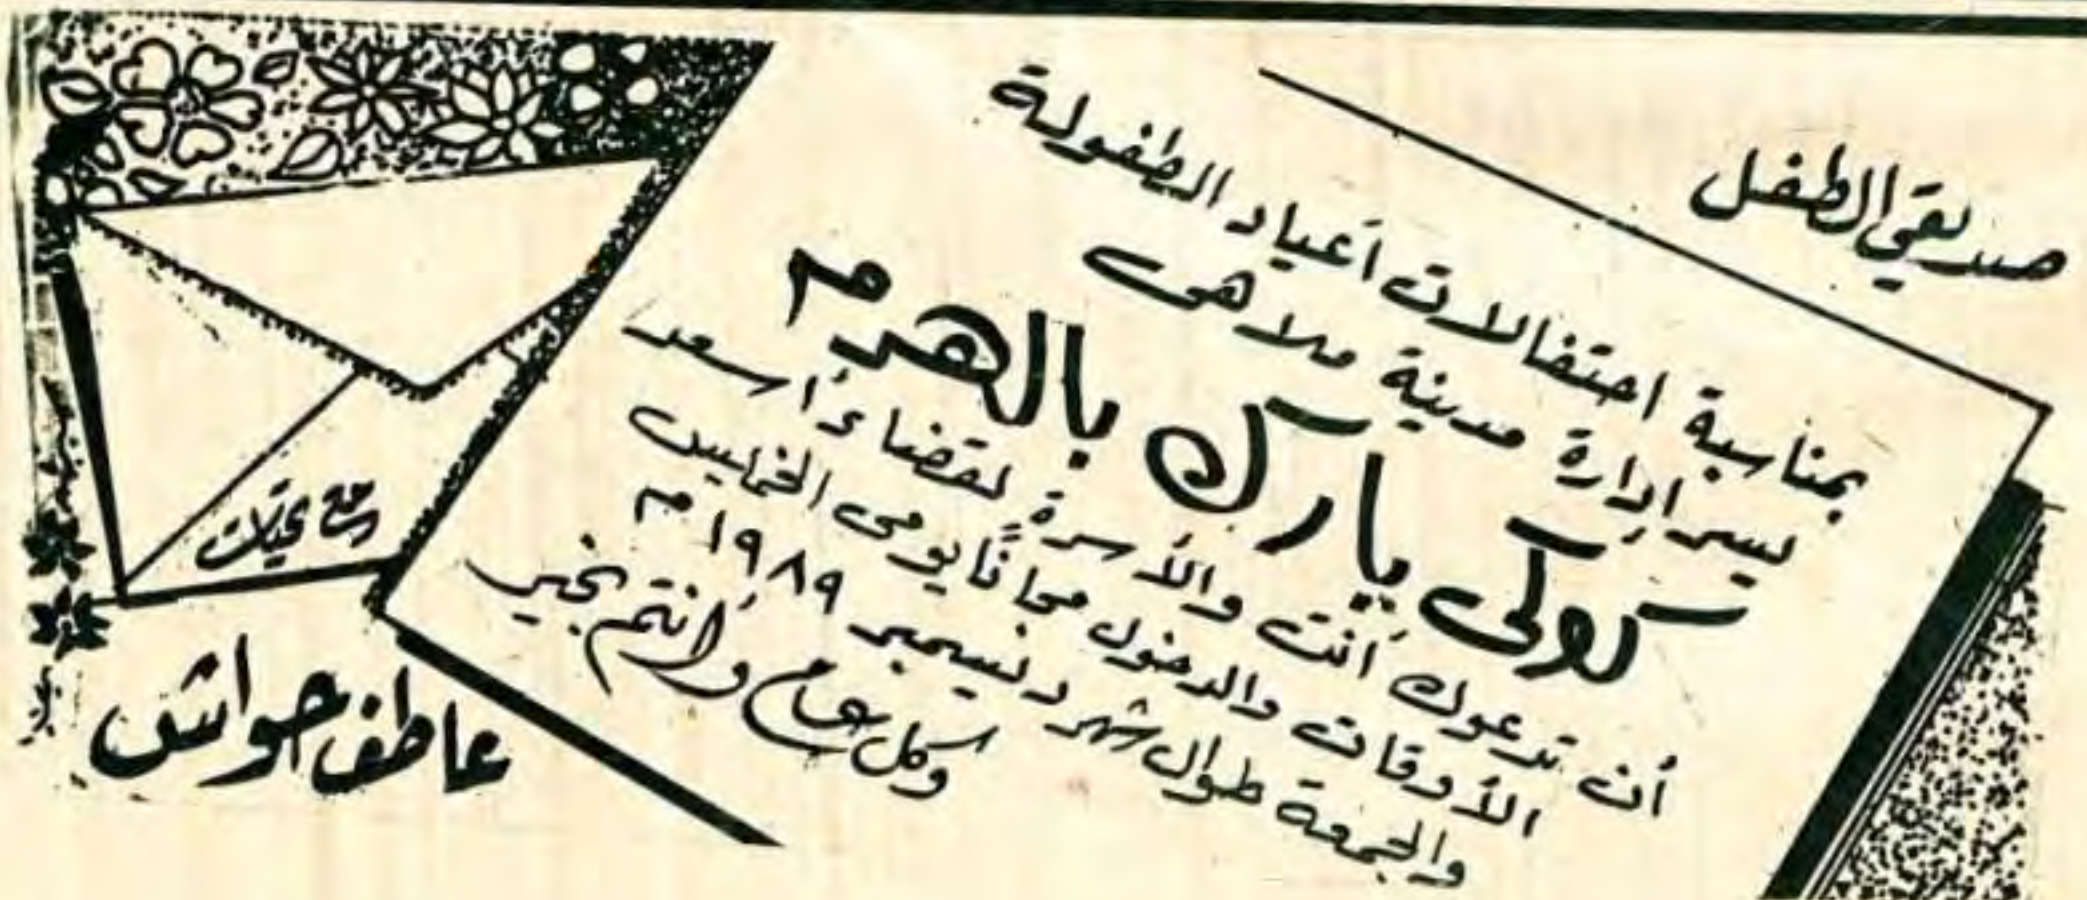 صديقي الطفل
بمناسبة احتفالات أعياد الطفولة
يسر إدارة مدينة ملاهى
كوكى بارك بالهرم
أن تدعوك أنت والأسرة لقضاء أسعد
الأوقات والدخول مجاناً يومى الخميس
والجمعة طوال شهر ديسمبر ١٩٨٩ م
وكل عام وأنتم بخير
مع تحيات
عاطف حواش